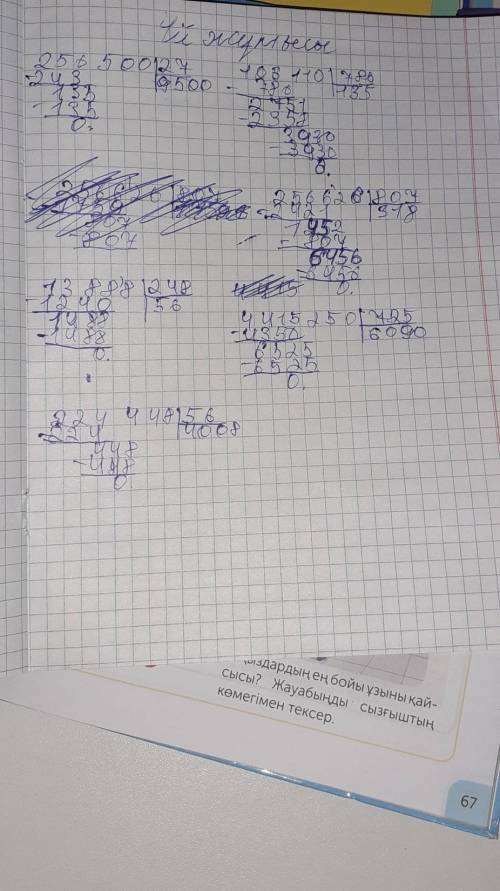 Үй жұмысы
256 500 | 27
- 243 | 9500
135
- 135
0.
123 110 | 786
- 786 | 135
2751
- 2358
3930
- 3930
0.
256626 | 807
- 2421 | 318
1452
- 807
6456
- 6456
0.
13 888 | 248
- 1240 | 56
1488
- 1488
0.
4415250 | 725
- 4350 | 6090
6525
- 6525
0.
224 448 | 56
- 224 | 4008
448
- 448
0
ыздардың ең бойы ұзыны қай-
сысы? Жауабыңды сызғыштың
көмегімен тексер.
67